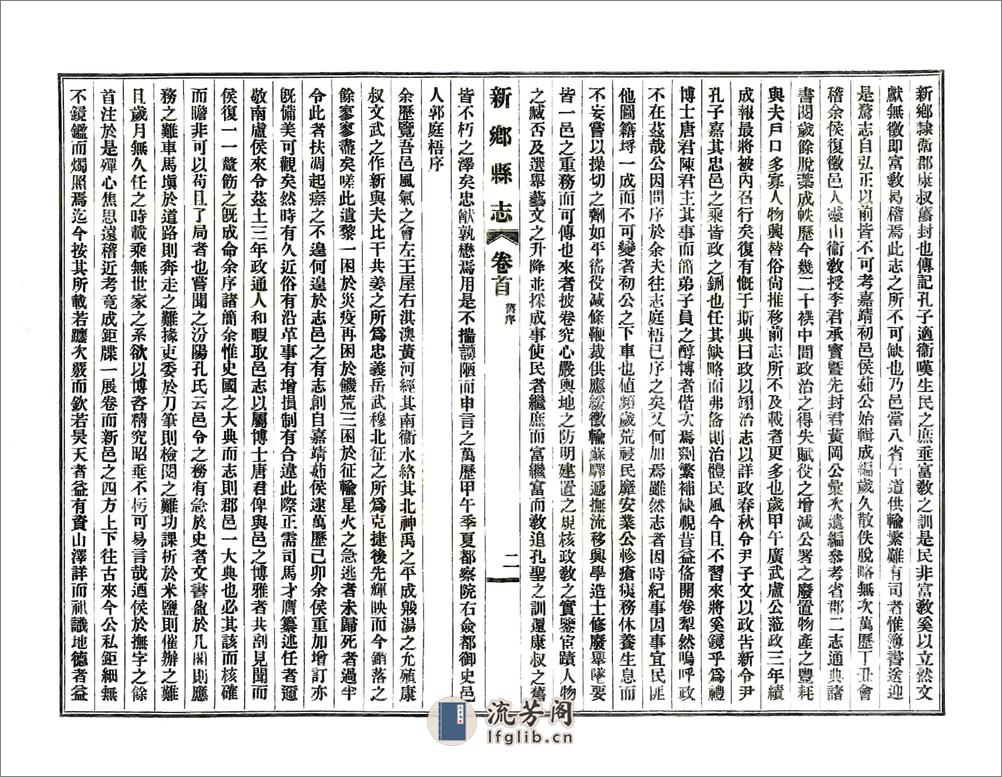 新鄉隸衛郡康叔舊封也傳記孔子適衞嘆生民之庶垂富敎之訓是民非富敎奚以立然文
獻無徵即富敎曷稽焉此志之所不可缺也乃邑當八省午道供輸繁難有司者惟簿書送迎
是騖志自弘正以前皆不可考嘉靖初邑侯茹公始輯成編歲久散佚脫略無次萬歷丁丑會
稽余侯復徵邑人壺山衞敎授李君承寳曁先封君黃岡公彙次遺編參考省郡二志通典諸
書閱歲餘脫藁成帙歷今幾二十禩中間政治之得失賦役之增減公署之廢置物產之豐耗
與夫戶口多寡人物興替俗尙推移前志所不及載者更多也歲甲午廣武盧公蒞政三年績
成報最將被內召行矣復有慨于斯典曰政以翊治志以詳政春秋令尹子文以政吿新令尹
孔子嘉其忠邑之乘皆政之鉶也任其缺略而弗俻則治體民風今日不習來將奚鏡乎爲禮
博士唐君陳君主其事而簡弟子員之醇博者偕次焉剗繁補缺視昔益俻開卷犁然嗚呼政
不在茲哉公因問序於余夫往志庭梧已序之矣又何加焉雖然志者因時紀事因事宜民匪
他圖籍埒一成而不可變者初公之下車也値頻歲荒祲民靡安業公軫瘡痍務休養生息而
不妄嘗以操切之劑如平徭役減條鞭裁供應緩徵輸蘇驛遞撫流移興學造士修廢舉墜要
皆一邑之重務而可傳也來者披卷究心嚴輿地之防明建置之規核政敎之實鑒宦蹟人物
之臧否及選舉藝文之升降並採成事使民者繼庶而富繼富而敎追孔聖之訓還康叔之舊
新鄉縣志 卷首 舊序 二
皆不朽之澤矣忠猷孰懋焉用是不揣譾陋而申言之萬歷甲午季夏都察院右僉都御史邑
人郭庭梧序
余歷覽吾邑風氣之會左王屋右淇澳黃河經其南衞水絡其北神禹之平成毅湯之允殖康
叔文武之作新與夫比干共姜之所爲忠義岳武穆北征之所爲克捷後先輝映而今銷落之
餘寥寥盡矣嗟此遺黎一困於災疫再困於饑荒三困於征輸星火之急逃者未歸死者過半
令此者扶凋起瘵之不遑何遑於志邑之有志創自嘉靖茹侯逮萬歷己卯余侯重加增訂亦
旣備美可觀矣然時有久近俗有沿革事有增損制有合違此際正需司馬才膺纂述任者邇
敬南盧侯來令茲土三年政通人和暇取邑志以屬博士唐君俾與邑之博雅者共剖見聞而
侯復一一釐飭之旣成命余序諸簡余惟史國之大典而志則郡邑一大典也必其該而核確
而瞻非可以苟且了局者也嘗聞之汾陽孔氏云邑令之務有急於史者文書盈於几閣則應
務之難車馬塡於道路則奔走之難掾吏委於刀筆則檢閱之難功課析於米鹽則催辦之難
且歲月無久任之時載乘無世家之系欲以博咨精究昭垂不朽可易言哉迺侯於撫字之餘
首注於是殫心焦思遠稽近考竟成鉅牒一展卷而新邑之四方上下往古來今公私鉅細無
不鏡鑑而燭照焉迄今按其所載若躔次嚴而欽若昊天者益有賁山澤詳而祗譏地德者益
流芳阁
lfglib.cn